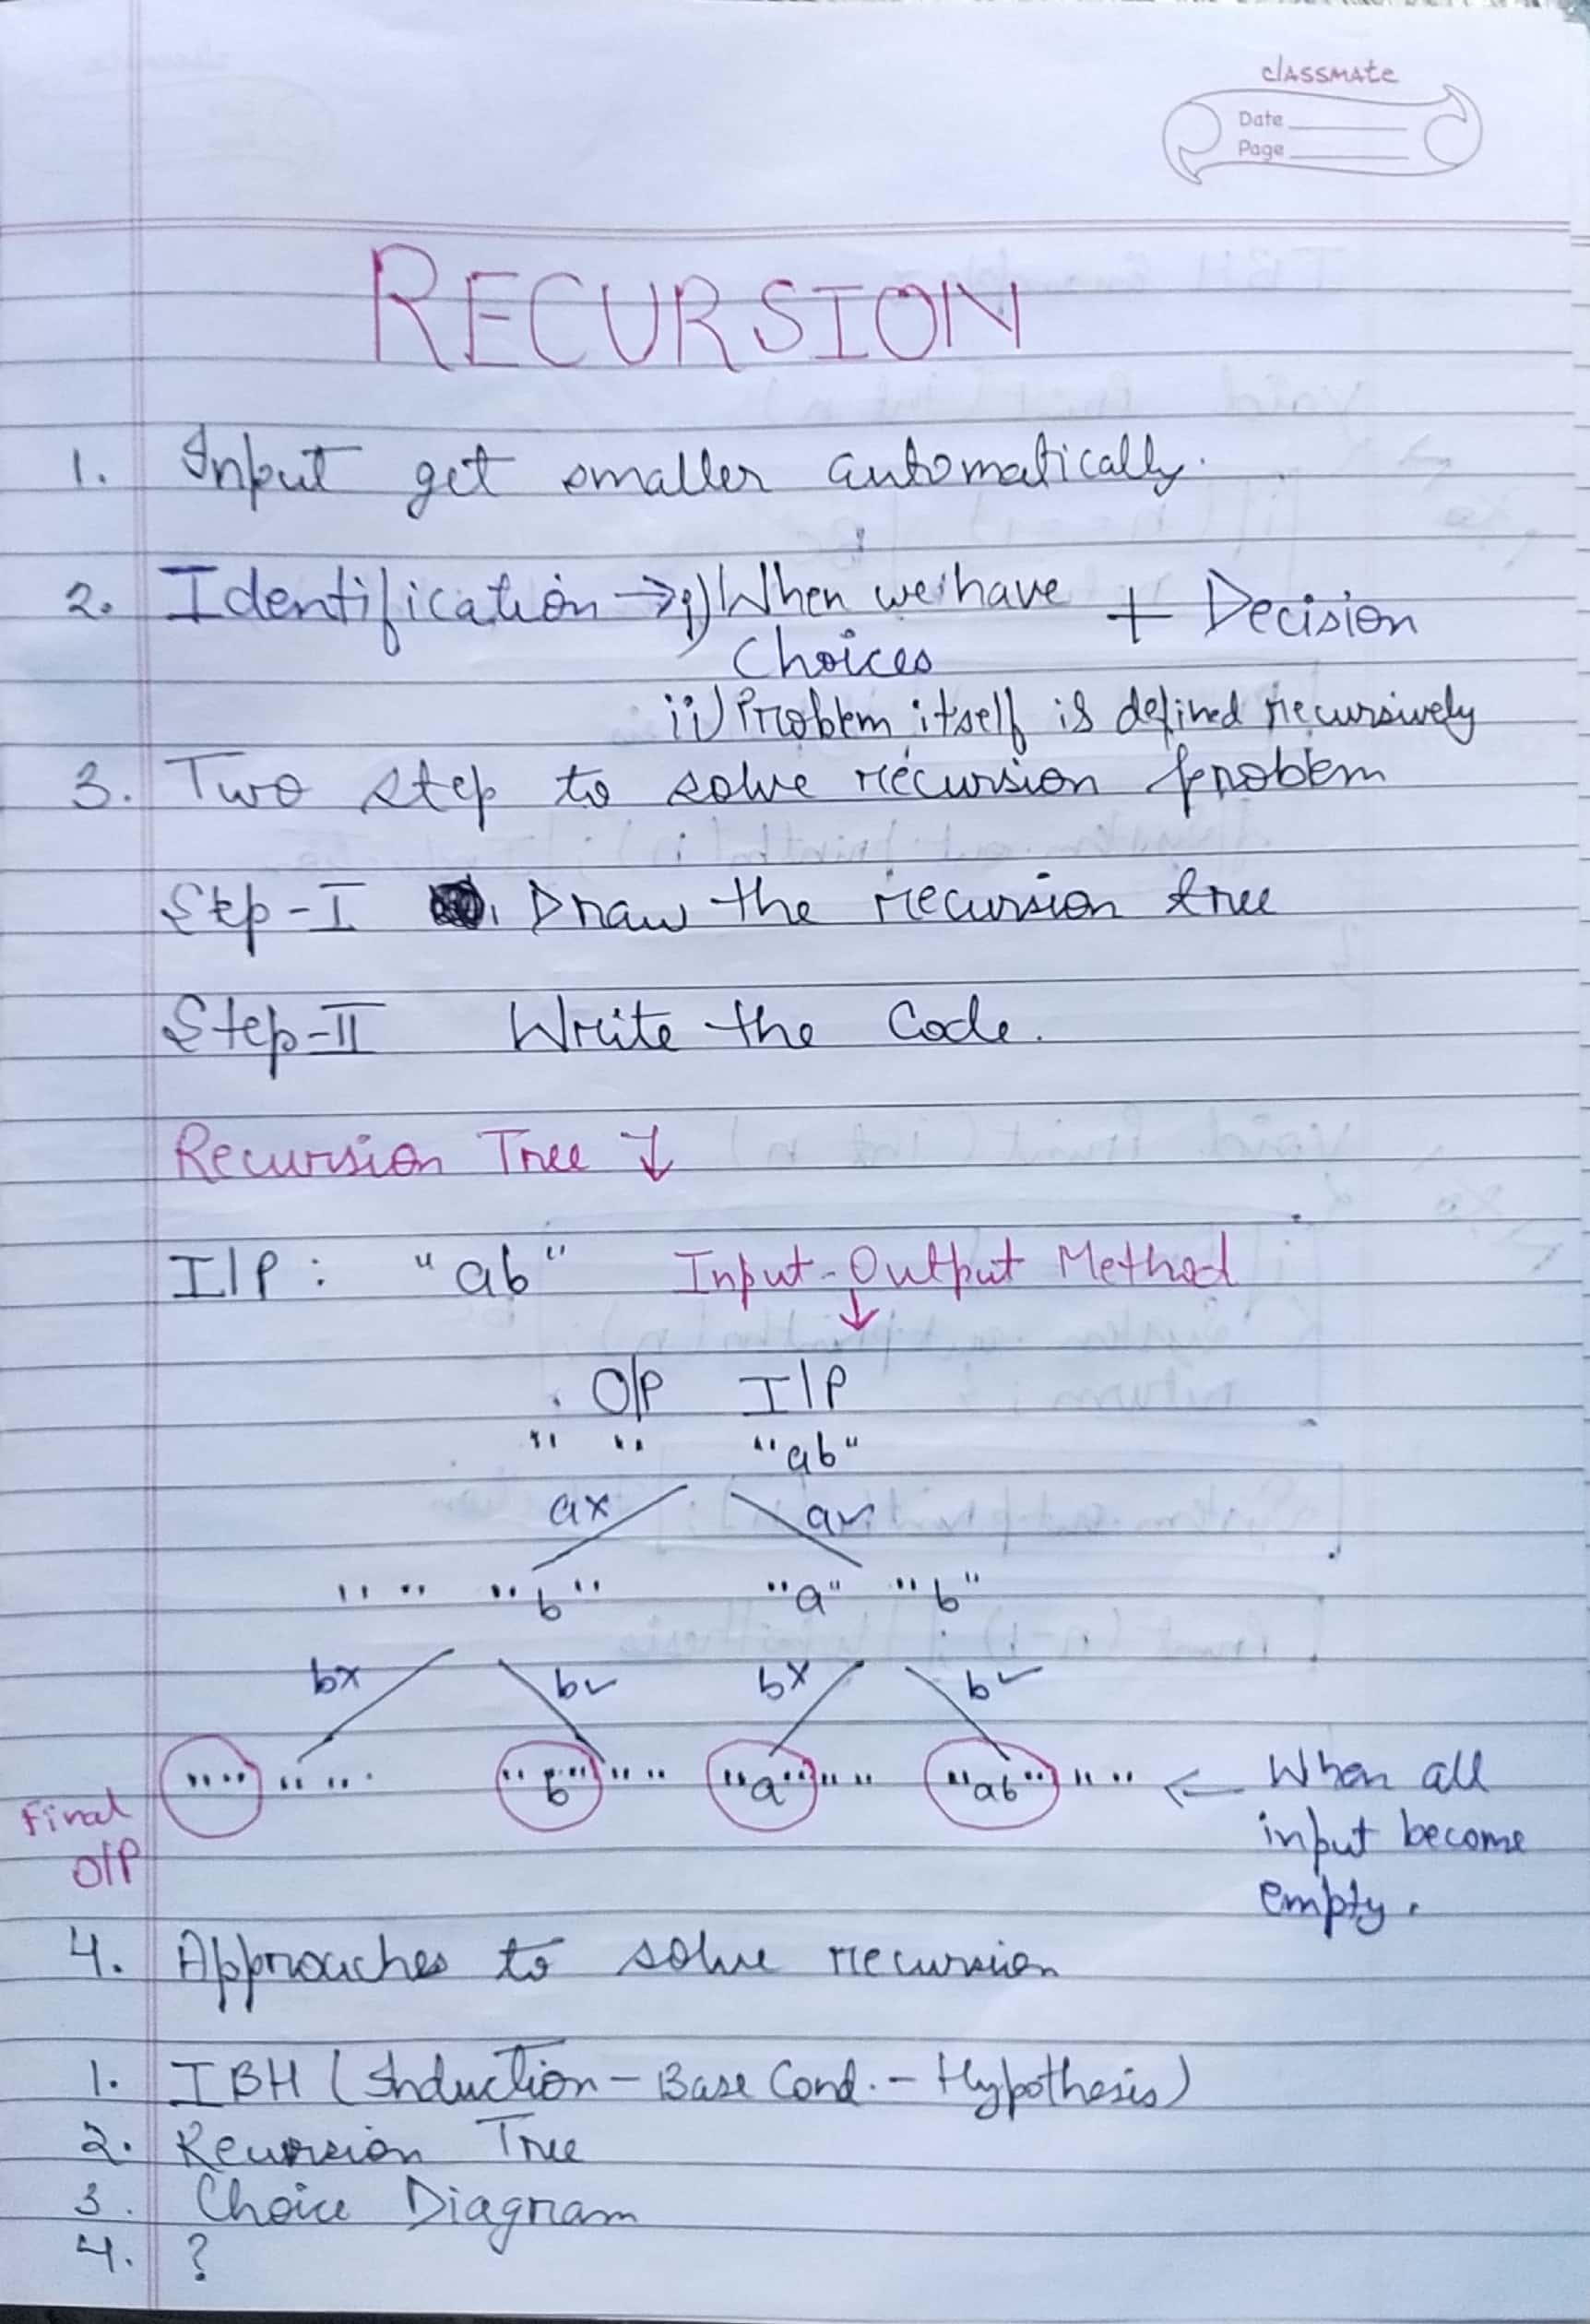 classmate
Date
Page
RECURSION
1. Input get smaller automatically.
2. Identification → i) When we have + Decision
Choices
ii) Problem itself is defined recursively
3. Two step to solve recursion problem
Step-I Draw the recursion tree
Step-II Write the Code.
Recursion Tree ↓
I/P : "ab" Input-Output Method
↓
O/P I/P
" " "ab"
a× a✓
" " "b" "a" "b"
b× b✓ b× b✓
" " " " "b" " " "a" " " "ab" " " ← When all
Final input become
O/P empty.
4. Approaches to solve recursion
1. IBH (Induction - Base Cond. - Hypothesis)
2. Recursion Tree
3. Choice Diagram
4. ?